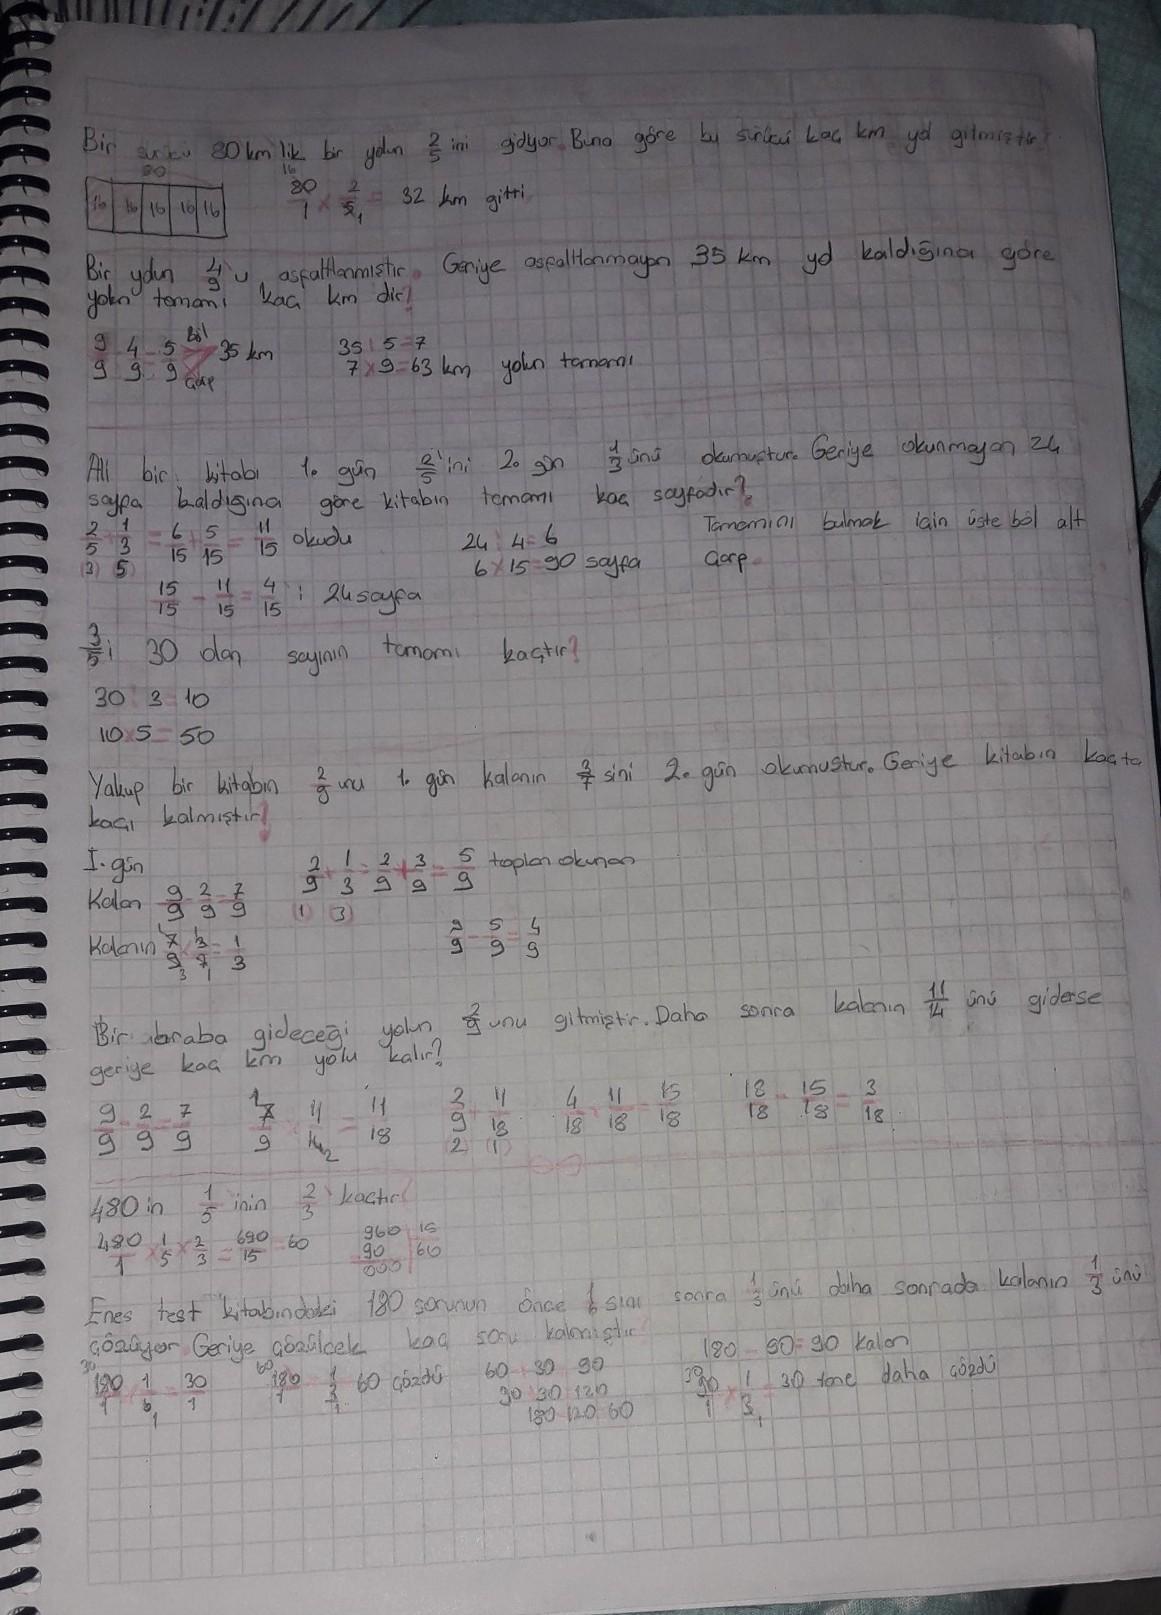 Bir sürücü 80 km lik bir yolun 2/5 ini gidiyor. Buna göre bu sürücü kaç km yol gitmiştir?
80
16 16 16 16 16
16 80/1 × 2/5 1 = 32 km gitti
Bir yolun 4/9 u asfaltlanmıştır. Geriye asfaltlanmayan 35 km yol kaldığına göre
yolun tamamı kaç km dir?
9/9 - 4/9 = 5/9 Böl Çarp 35 km
35 : 5 = 7
7 × 9 = 63 km yolun tamamı
Ali bir kitabı 1. gün 2/5'ini 2. gün 1/3 ünü okumuştur. Geriye okunmayan 24
sayfa kaldığına göre kitabın tamamı kaç sayfadır?
2/5 + 1/3 = 6/15 + 5/15 = 11/15 okudu
(3) (5)
15/15 - 11/15 = 4/15 : 24 sayfa
24 : 4 = 6
6 × 15 = 90 sayfa
Tamamını bulmak için üste böl alt
çarp.
3/5 i 30 olan sayının tamamı kaçtır?
30 : 3 = 10
10 × 5 = 50
Yakup bir kitabın 2/9 unu 1. gün kalanın 3/7 sini 2. gün okumuştur. Geriye kitabın kaçta
kaçı kalmıştır?
I. gün
Kalan 9/9 - 2/9 = 7/9
Kalanın 7/9 × 3/7 = 1/3
2/9 + 1/3 = 2/9 + 3/9 = 5/9 toplan okunan
(1) (3)
9/9 - 5/9 = 4/9
Bir araba gideceği yolun 2/9 unu gitmiştir. Daha sonra kalanın 11/14 ünü giderse
geriye kaç km yolu kalır?
9/9 - 2/9 = 7/9 7/9 × 11/14 = 11/18 2/9 + 11/18 4/18 + 11/18 = 15/18 18/18 - 15/18 = 3/18
(2) (1)
480 in 1/5 inin 2/3 kaçtır?
480/1 × 1/5 × 2/3 = 690/15 = 60
960 15
90 60
000
Enes test kitabındaki 180 sorunun önce 1/6 sını sonra 1/3 ünü daha sonrada kalanın 1/3 ünü
çözüyor. Geriye çözülcek kaç soru kalmıştır
180/1 1/6 = 30/1
180/1 1/3 60 çözdü
60 + 30 90
90 30 120
180 120 60
180 - 90 = 90 kalan
90/1 × 1/3 = 30 tane daha çözdü